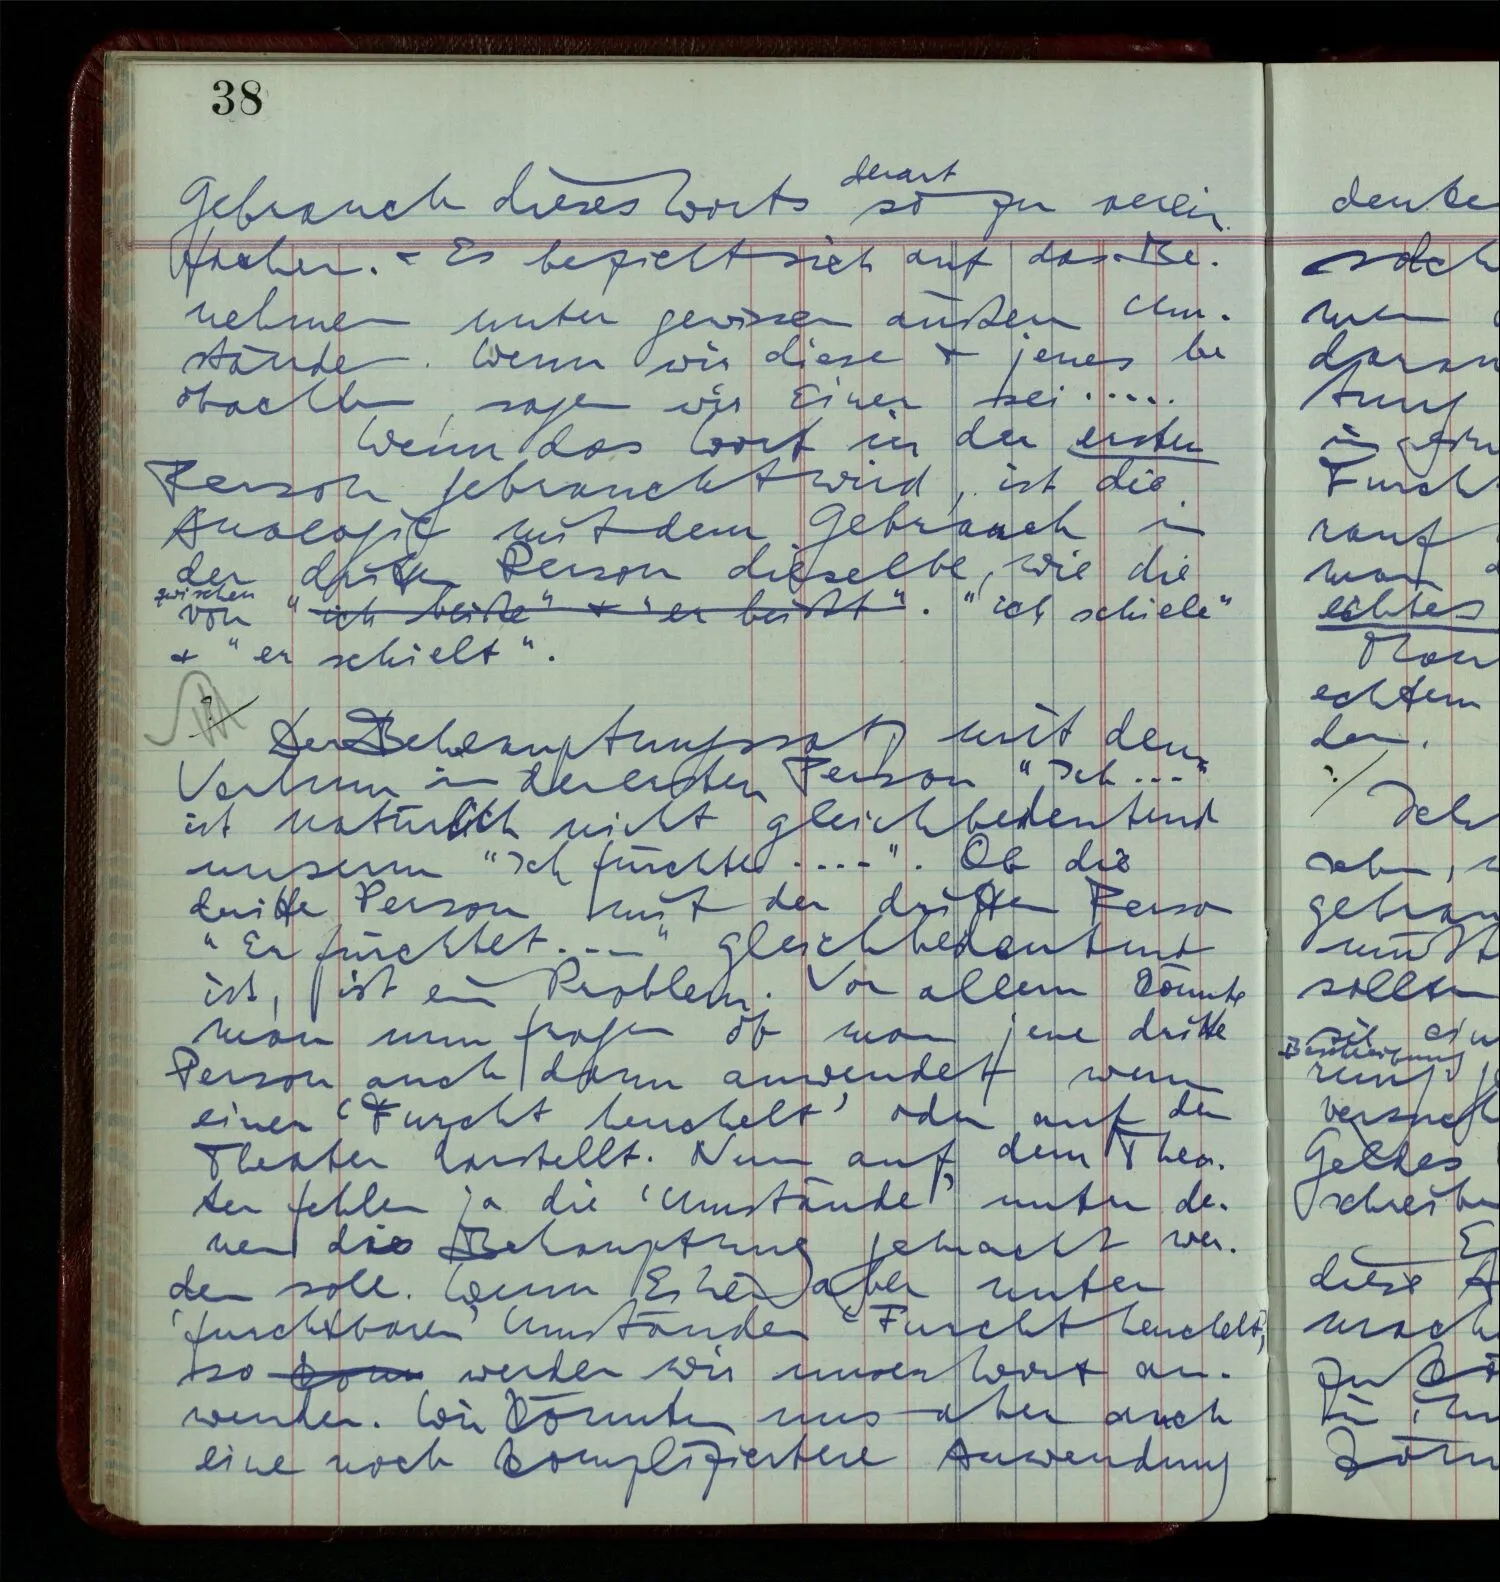 38
derart
Gebrauch dieses Worts so zu verein-
fachen. – Es bezieht sich auf das Be-
nehmen unter gewissen äußern Um-
stände. Wenn wir diese + jenes be
obachten, sagen wir Einer sei .....
Wenn das Wort in der ersten
Person gebraucht wird, ist die
Analogie mit dem Gebrauch in
der dritten Person dieselbe, wie die
zwischen
von "ich beiße" + "er beißt". "ich schiele"
+ "er schielt".
?/ Der Behauptungssatz mit dem
Verbum in der ersten Person "Ich ..."
ist natürlich nicht gleichbedeutend
unserm "Ich fürchte ....". Ob die
dritte Person mit der dritten Person
"Er fürchtet...." gleichbedeutend
ist, ist ein Problem. Vor allem könnte
man nun fragen ob man jene dritte
Person auch dann anwendet wenn
einer 'Furcht heuchelt' oder auf dem
Theater darstellt. Nun auf dem Thea-
ter fehlen ja die 'Umstände' unter de-
nen die Behauptung gemacht wer-
den soll. Wenn Einer aber unter
'furchtbaren' Umständen 'Furcht heuchelt',
so kann werden wir unser Wort an-
wenden. Wir könnten uns aber auch
eine noch komplifiziertere Anwendung
denke
solch
daran
Furcht
rauf
echtes
Man
echtem
den.
·/ Ich
gebrau
müßt
sollte
Beschreibung
versuch
Geldes
schreibe
diese A
mach